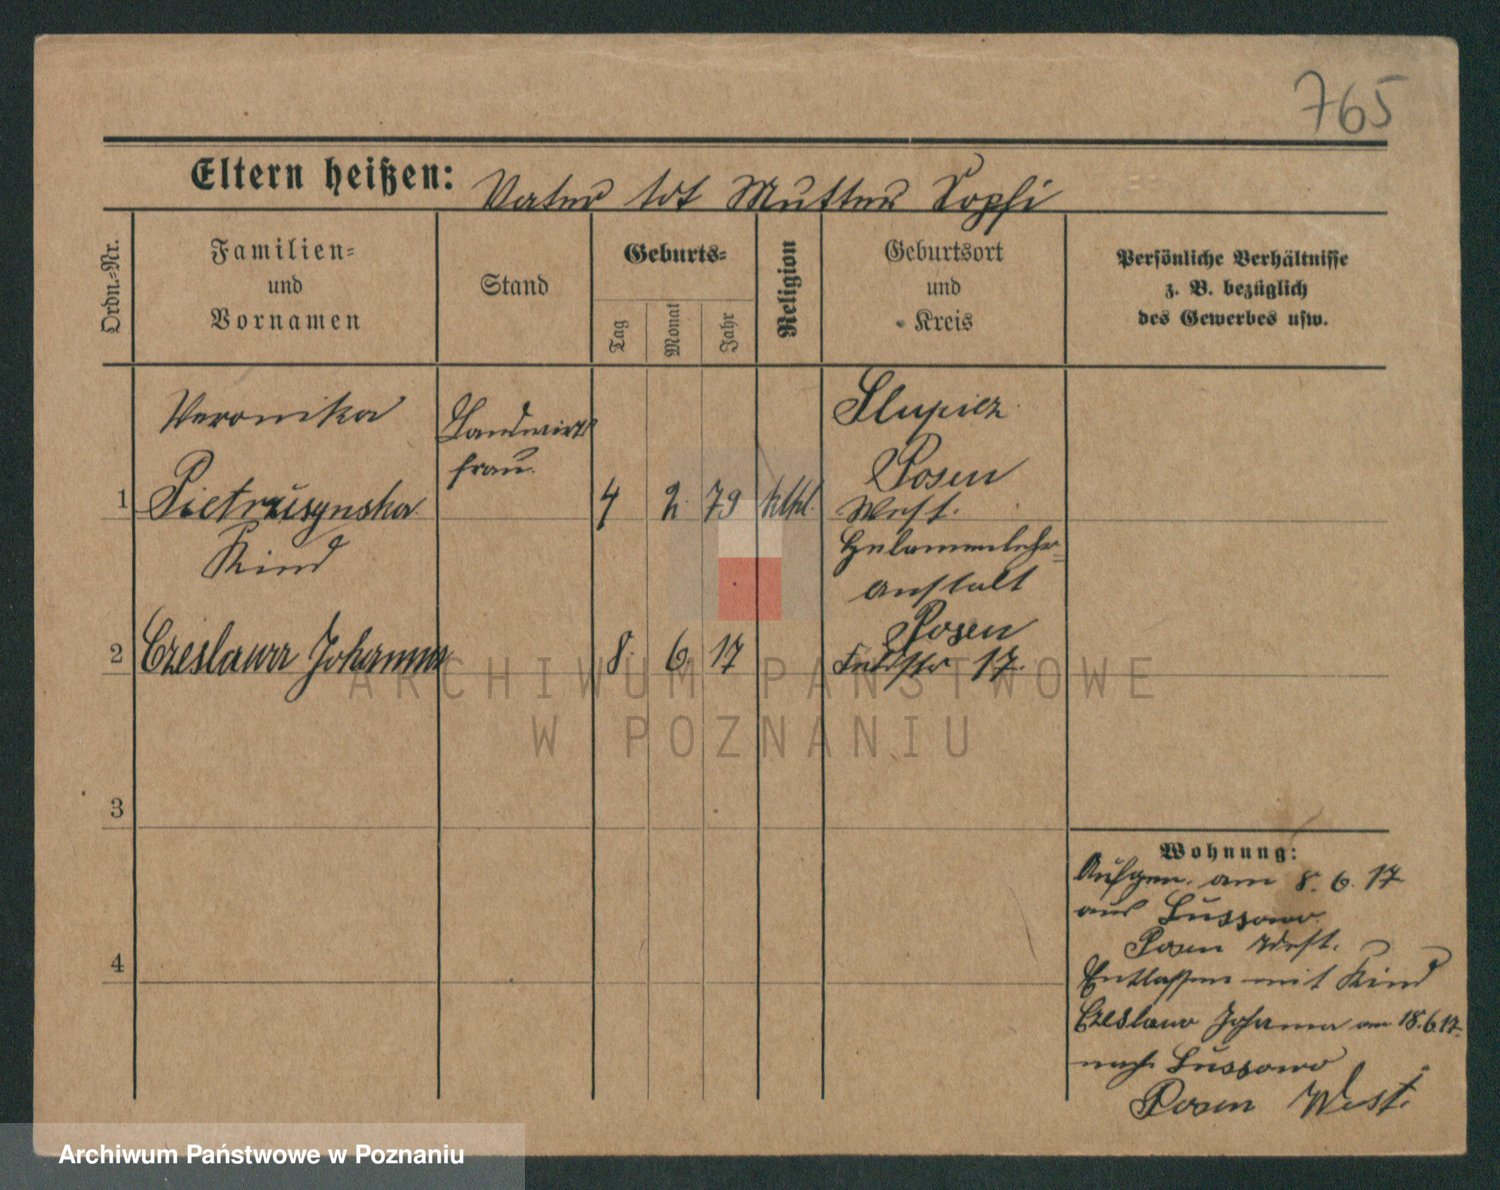 765
Eltern heißen: Vater tot Mutter Sophi
Ordn.-Nr.
Familien-
und
Vornamen
Stand
Geburts-
Tag
Monat
Jahr
Religion
Geburtsort
und
Kreis
Persönliche Verhältnisse
z. B. bezüglich
des Gewerbes usw.
Veronika
Pietrusynska
1
Landwirts
frau.
4 2. 79 kthl.
Slupiez
Posen
West.
Kind
Czeslawa Johanna
2
8. 6. 17
Hebammenlehr=
anstalt
Posen
17.
3
4
Wohnung:
Aufgen. am 8. 6. 17
aus Lussowo
Posen West.
Entlassen mit Kind
Czeslawa Johanna am 18.6.17.
nach Lussowo
Posen West.
ARCHIWUM PAŃSTWOWE
W POZNANIU
Archiwum Państwowe w Poznaniu